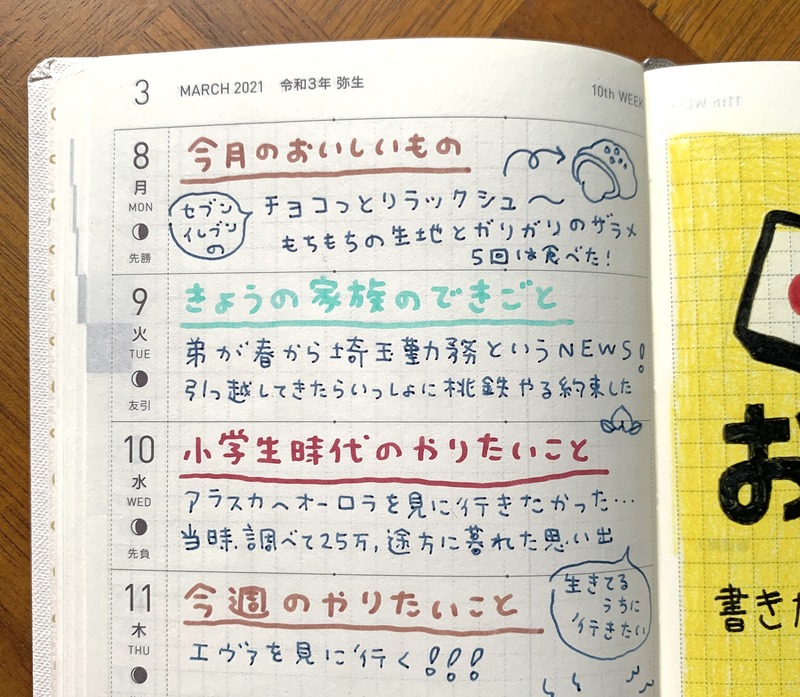 3 MARCH 2021 令和3年 弥生
10th WEEK
8 月 MON 先勝
今月のおいしいもの
セブン
イレブン
の
チョコっとリラックシュ〜
もちもちの生地とガリガリのザラメ
5回は食べた!
9 火 TUE 友引
きょうの家族のできごと
弟が春から埼玉勤務というNEWS!
引っ越してきたらいっしょに桃鉄やる約束した
10 水 WED 先負
小学生時代のやりたいこと
アラスカへオーロラを見に行きたかった…
当時、調べて25万、途方に暮れた思い出
生きてる
うちに
行きたい
11 木 THU
今週のやりたいこと
エヴァを見に行く!!!
お
書き